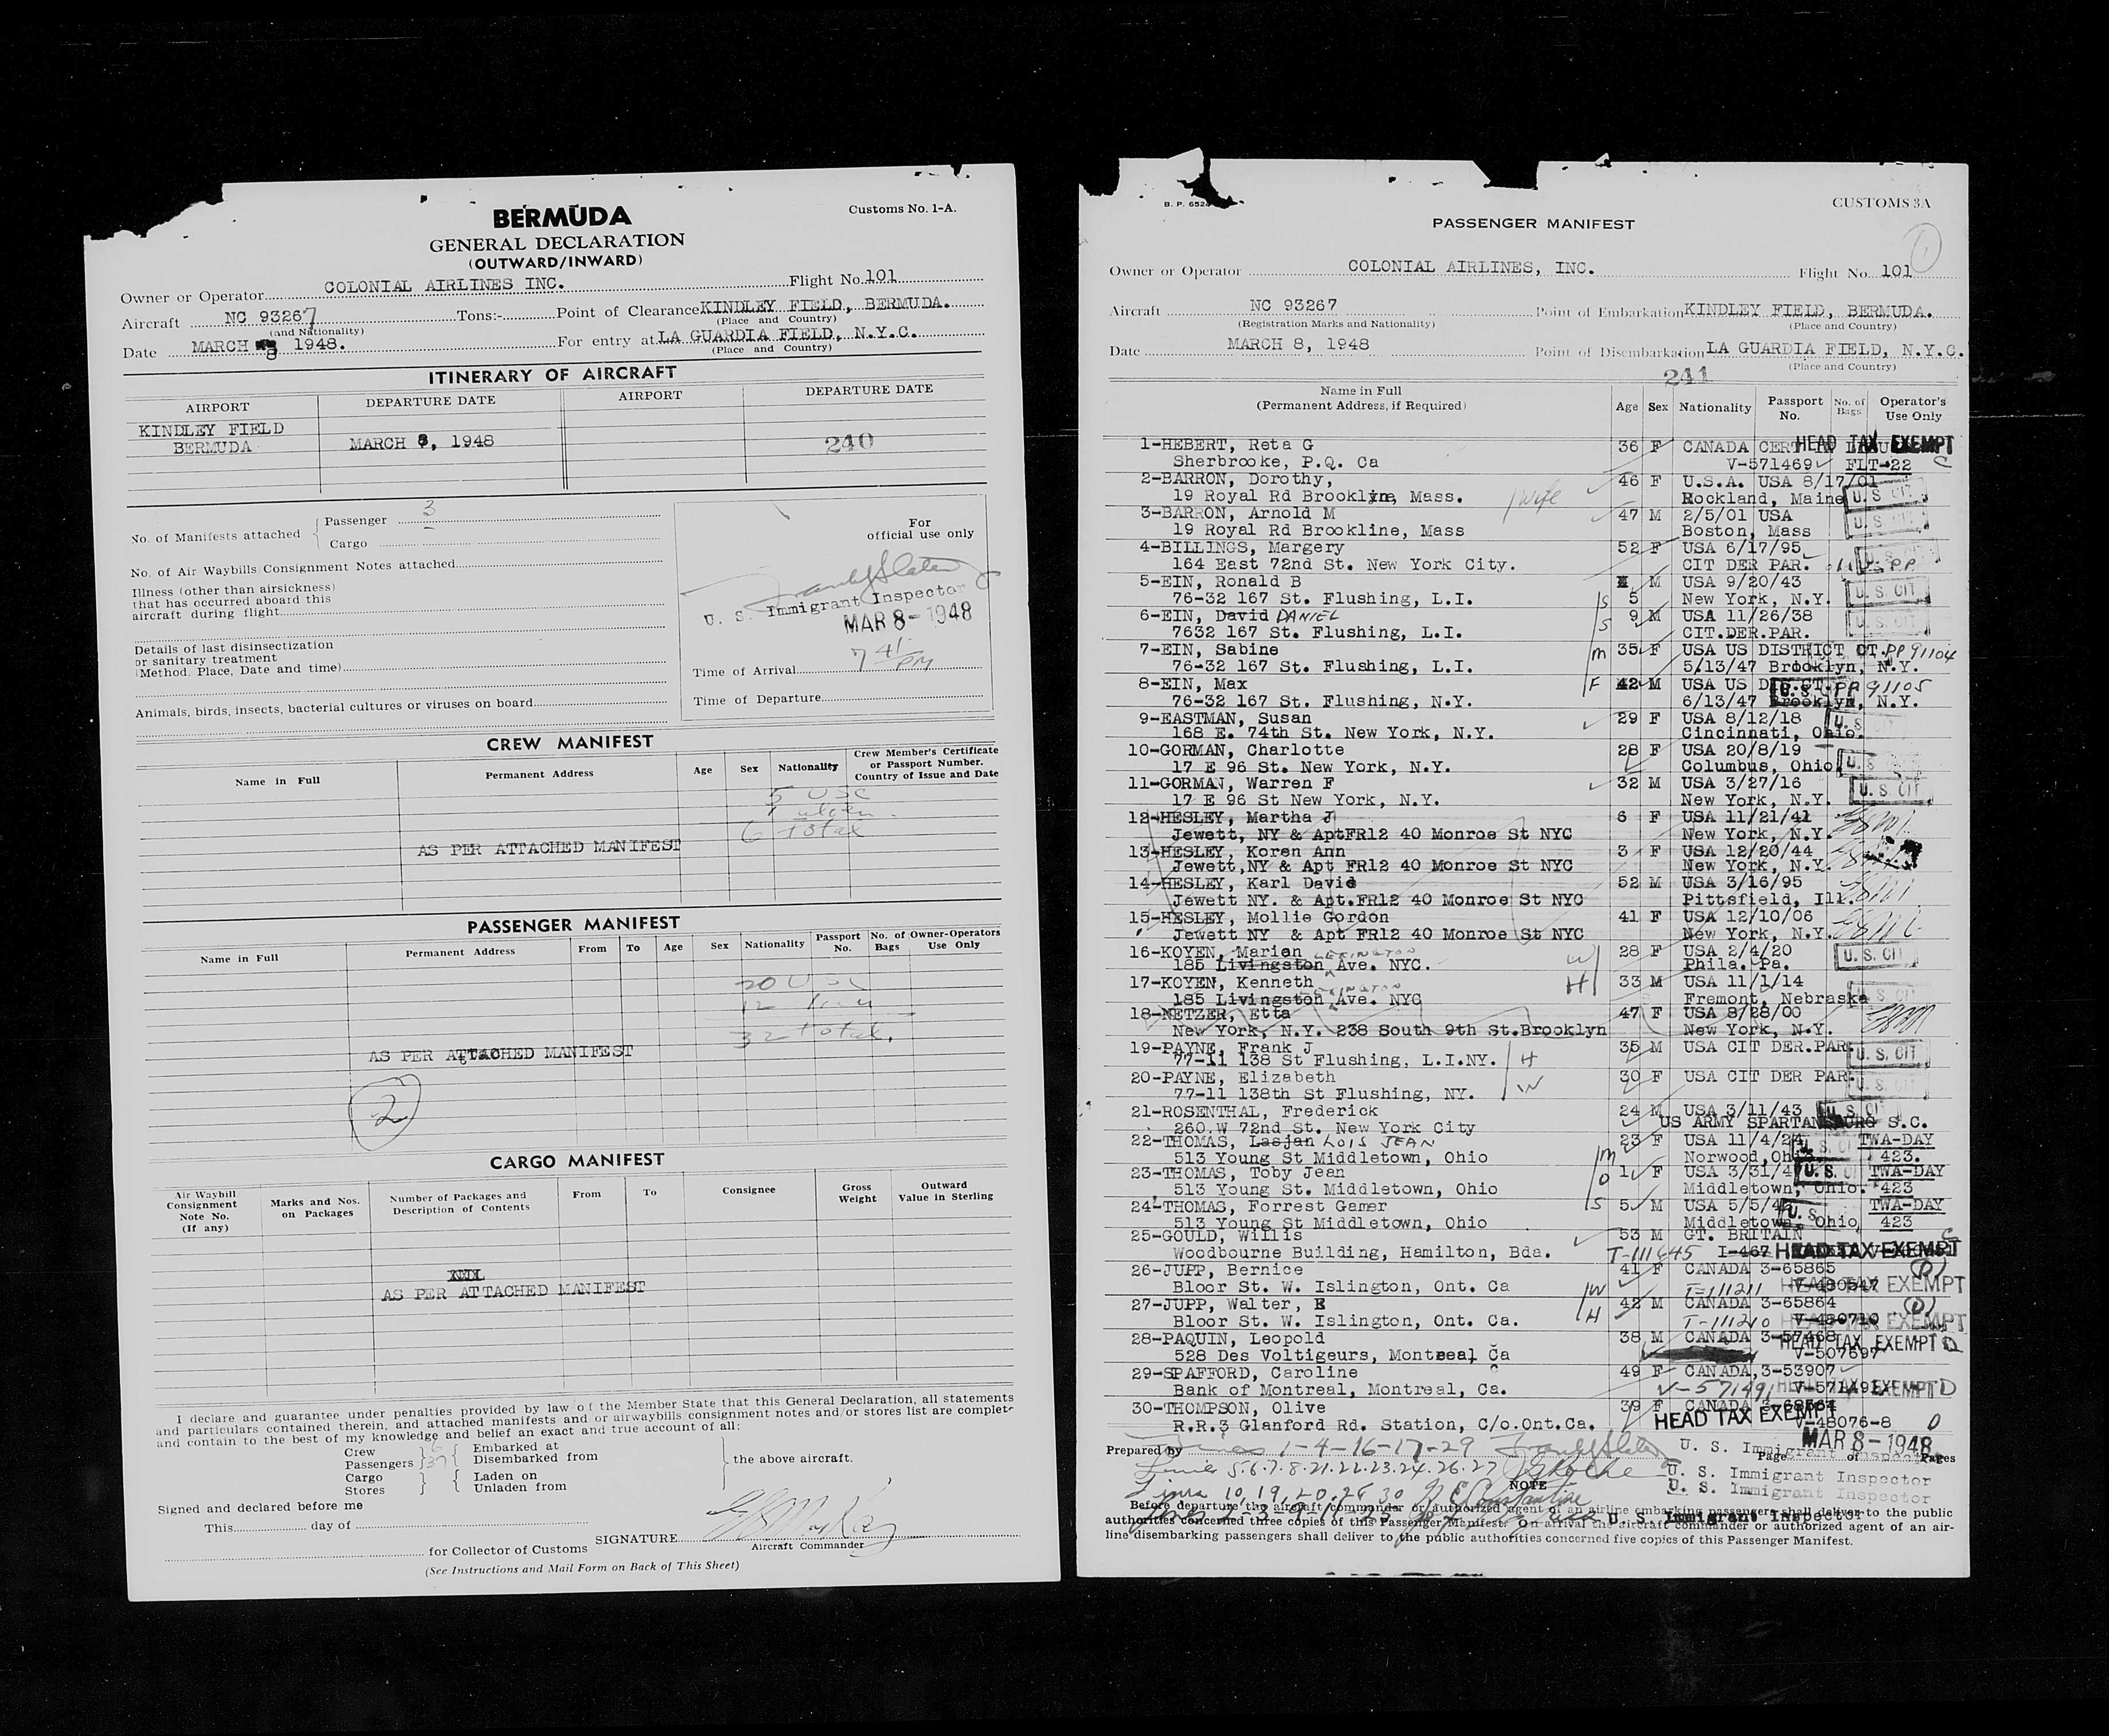 BERMUDA
Customs No. 1-A.
GENERAL DECLARATION
(OUTWARD/INWARD)
Owner or Operator COLONIAL AIRLINES INC. Flight No. 101
Aircraft NC 93267 Tons:- Point of Clearance KINDLEY FIELD, BERMUDA.
(and Nationality) (Place and Country)
Date MARCH 8 1948. For entry at LA GUARDIA FIELD, N.Y.C.
(Place and Country)
ITINERARY OF AIRCRAFT
AIRPORT DEPARTURE DATE AIRPORT DEPARTURE DATE
KINDLEY FIELD
BERMUDA MARCH 8, 1948 240
No. of Manifests attached
Passenger 3
Cargo
No. of Air Waybills/Consignment Notes attached
Illness (other than airsickness)
that has occurred aboard this
aircraft during flight
Details of last disinsectization
or sanitary treatment
(Method, Place, Date and time)
Animals, birds, insects, bacterial cultures or viruses on board
For
official use only
U. S. Immigrant Inspector
MAR 8 - 1948
7 41 PM
Time of Arrival
Time of Departure
CREW MANIFEST
Name in Full Permanent Address Age Sex Nationality Crew Member's Certificate
or Passport Number.
Country of Issue and Date
5 USC
1 alien
6 total
AS PER ATTACHED MANIFEST
PASSENGER MANIFEST
Name in Full Permanent Address From To Age Sex Nationality Passport No. No. of Bags Owner-Operators Use Only
20 USC
12
32 total.
AS PER ATTACHED MANIFEST
2
CARGO MANIFEST
Air Waybill/ Consignment Note No. (If any) Marks and Nos. on Packages Number of Packages and Description of Contents From To Consignee Gross Weight Outward Value in Sterling
AS PER ATTACHED MANIFEST
I declare and guarantee under penalties provided by law of the Member State that this General Declaration, all statements
and particulars contained therein, and attached manifests and or airwaybills consignment notes and/or stores list are complete
and contain to the best of my knowledge and belief an exact and true account of all:
Crew 6 Embarked at
Passengers Disembarked from
the above aircraft.
Cargo Laden on
Stores Unladen from
Signed and declared before me
This day of
SIGNATURE
for Collector of Customs
Aircraft Commander
(See Instructions and Mail Form on Back of This Sheet)
B. P. 652
CUSTOMS 3A
PASSENGER MANIFEST
1
Owner or Operator COLONIAL AIRLINES, INC. Flight No. 101
Aircraft NC 93267 Point of Embarkation KINDLEY FIELD, BERMUDA.
(Registration Marks and Nationality) (Place and Country)
Date MARCH 8, 1948 Point of Disembarkation LA GUARDIA FIELD, N.Y.C.
(Place and Country)
241
Name in Full
(Permanent Address, if Required) Age Sex Nationality Passport No. No. of Bags Operator's Use Only
1-HEBERT, Reta G 36 F CANADA CERT HEAD TAX EXEMPT
Sherbrooke, P.Q. Ca V-571469 FLT-22 C
2-BARRON, Dorothy, 46 F U.S.A. USA 8/17/01
19 Royal Rd Brookline, Mass. wife Rockland, Maine U. S. CIT
3-BARRON, Arnold M 47 M 2/5/01 USA U. S. CIT
19 Royal Rd Brookline, Mass Boston, Mass
4-BILLINGS, Margery 52 F USA 6/17/95
164 East 72nd St. New York City. CIT DER PAR. U. S. CIT
5-EIN, Ronald B M USA 9/20/43
76-32 167 St. Flushing, L.I. S 5 New York, N.Y. U. S. CIT
6-EIN, David DANIEL 9 M USA 11/26/38
7632 167 St. Flushing, L.I. S CIT.DER.PAR. U. S. CIT
7-EIN, Sabine 35 F USA US DISTRICT CT. PP 91104
76-32 167 St. Flushing, L.I. m 5/13/47 Brooklyn, N.Y.
8-EIN, Max F 42 M USA US DIS CT. PP 91105
76-32 167 St. Flushing, N.Y. 6/13/47 Brooklyn, N.Y.
9-EASTMAN, Susan 29 F USA 8/12/18 U. S.
168 E. 74th St. New York, N.Y. Cincinnati, Ohio.
10-GORMAN, Charlotte 28 F USA 20/8/19
17 E 96 St. New York, N.Y. Columbus, Ohio U. S.
11-GORMAN, Warren F 32 M USA 3/27/16
17 E 96 St New York, N.Y. New York, N.Y. U. S. CIT
12-HESLEY, Martha J 6 F USA 11/21/41
Jewett, NY & AptFR12 40 Monroe St NYC New York, N.Y.
13-HESLEY, Koren Ann 3 F USA 12/20/44
Jewett,NY & Apt FR12 40 Monroe St NYC New York, N.Y.
14-HESLEY, Karl David 52 M USA 3/16/95
Jewett NY. & Apt.FR12 40 Monroe St NYC Pittsfield, Ill.
15-HESLEY, Mollie Gordon 41 F USA 12/10/06
Jewett NY & Apt FR12 40 Monroe St NYC New York, N.Y.
16-KOYEN, Marian LEXINGTON W 28 F USA 2/4/20
185 Livingston Ave. NYC. Phila. Pa. U. S. CIT
17-KOYEN, Kenneth LEXINGTON H 33 M USA 11/1/14
185 Livingston Ave. NYC Fremont, Nebraska U. S. CIT
18-NETZER, Etta 47 F USA 8/28/00
New York, N.Y. 238 South 9th St.Brooklyn New York, N.Y.
19-PAYNE, Frank J 35 M USA CIT DER.PAR.
77-11 138 St Flushing, L.I.NY. H U. S. CIT
20-PAYNE, Elizabeth 30 F USA CIT DER PAR.
77-11 138th St Flushing, NY. W U. S.
21-ROSENTHAL, Frederick 24 M USA 3/11/43 U. S. CIT
260.W 72nd St. New York City US ARMY SPARTANSBURG S.C.
22-THOMAS, Lasjan LOIS JEAN 23 F USA 11/4/24 TWA-DAY
513 Young St Middletown, Ohio m Norwood, Ohio 423.
23-THOMAS, Toby Jean D 1 F USA 3/31/4 U. S. TWA-DAY
513 Young St. Middletown, Ohio Middletown, Ohio. 423
24-THOMAS, Forrest Gamer S 5 M USA 5/5/4 TWA-DAY
513 Young St Middletown, Ohio Middletown, Ohio 423
25-GOULD, Willis 53 M GT. BRITAIN
Woodbourne Building, Hamilton, Bda. T-111645 I-467 HEAD TAX EXEMPT
26-JUPP, Bernice 41 F CANADA 3-65865 (D)
Bloor St. W. Islington, Ont. Ca W T-111211 V-480547 HEAD TAX EXEMPT
27-JUPP, Walter, E 42 M CANADA 3-65864 (D)
Bloor St. W. Islington, Ont. Ca. H T-111210 V-480710 HEAD TAX EXEMPT
28-PAQUIN, Leopold 38 M CANADA 3-57468 HEAD TAX EXEMPT D
528 Des Voltigeurs, Montreal, Ca V-507697
29-SPAFFORD, Caroline 49 F CANADA,3-53907
Bank of Montreal, Montreal, Ca. V-571491 V-571491 HEAD TAX EXEMPT D
30-THOMPSON, Olive 39 F CANADA
R.R.3 Glanford Rd. Station, C/o.Ont.Ca. HEAD TAX EXEMPT V-48076-8 D
MAR 8 - 1948
Prepared by 1-4-16-17-29 U. S. Immigrant Inspector
Page of Pages
5.6.7.8.21.22.23.24.26.27 U. S. Immigrant Inspector
U. S. Immigrant Inspector
NOTE
U. S. Immigrant Inspector
Before departure the aircraft commander or authorized agent of an airline embarking passengers shall deliver to the public
authorities concerned three copies of this Passenger Manifest. On arrival the aircraft commander or authorized agent of an air-
line disembarking passengers shall deliver to the public authorities concerned five copies of this Passenger Manifest.